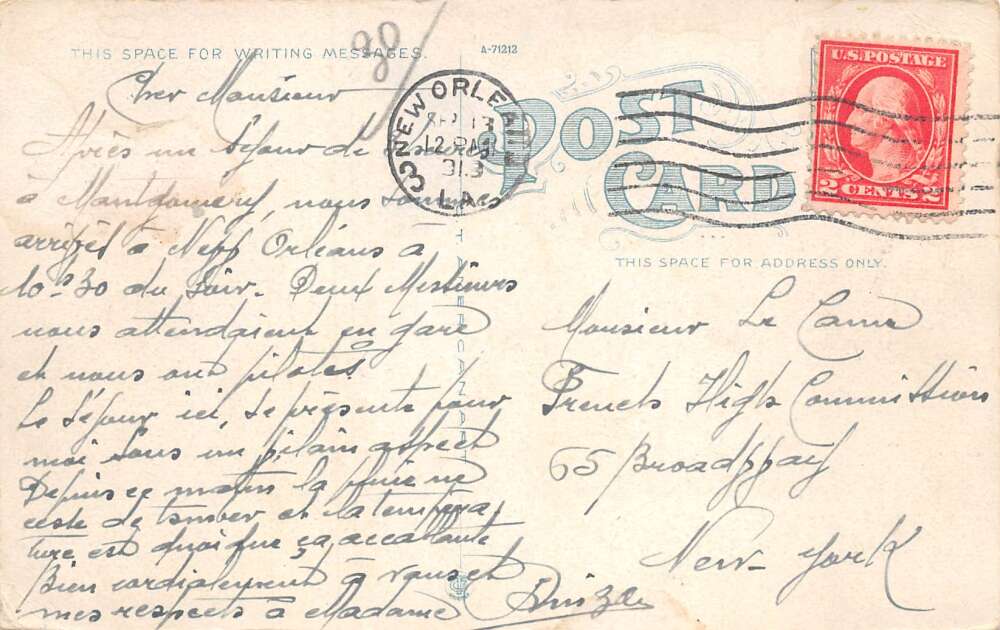 80/
THIS SPACE FOR WRITING MESSAGES.
A-71212
Cher Monsieur
Après un séjour de
à Montgomery, nous sommes
arrivés à New Orléans à
10-30 du soir. Deux Messieurs
nous attendaient en gare
et nous ont pilotés.
Le séjour ici, se présente pour
moi sous un vilain aspect
Depuis ce matin la pluie ne
cesse de tomber et la tempéra
ture est quoique ça accablante
Bien cordialement à vous et
mes respects à Madame
NEW ORLEANS
SEP 13
12
313
LA.
POST CARD
U.S. POSTAGE
2 CENTS 2
THIS SPACE FOR ADDRESS ONLY.
Monsieur Le
French High Commission
65 Broadway
New-York